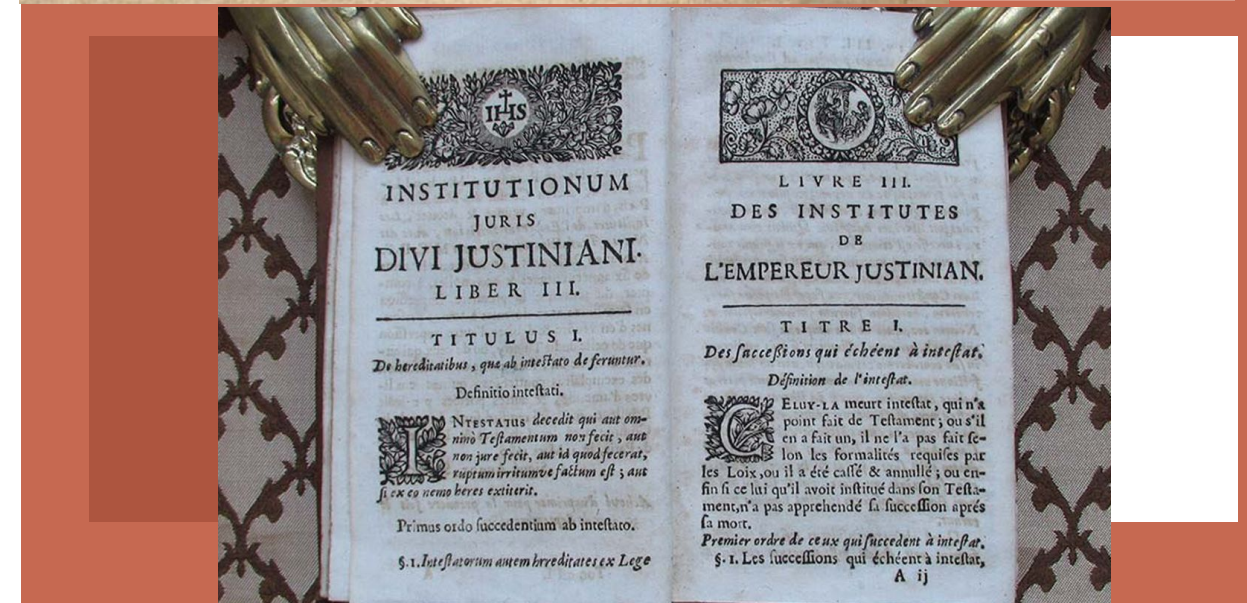 IHS
INSTITUTIONUM
JURIS
DIVI JUSTINIANI.
LIBER III.
TITULUS I.
De hereditatibus, quæ ab intestato deferuntur.
Definitio intestati.
INTESTATUS decedit qui aut om-
ninò Testamentum non fecit, aut
non jure fecit, aut id quod fecerat,
ruptum irritumve factum est; aut
si ex eo nemo heres extiterit.
Primus ordo succedentium ab intestato.
§.1. Intestatorum autem hreditates ex Lege
LIVRE III.
DES INSTITUTES
DE
L'EMPEREUR JUSTINIAN.
TITRE I.
Des saccessions qui échéent à intestat.
Définition de l'intestat.
CELUY-LA meurt intestat, qui n'a
point fait de Testament; ou s'il
en a fait un, il ne l'a pas fait se-
lon les formalités requises par
les Loix, ou il a été cassé & annullé; ou en-
fin si ce lui qu'il avoit institué dans son Testa-
ment, n'a pas apprehendé sa succession aprés
sa mort.
Premier ordre de ceux qui succedent à intestat.
§.1. Les successions qui échéent à intestat,
A ij